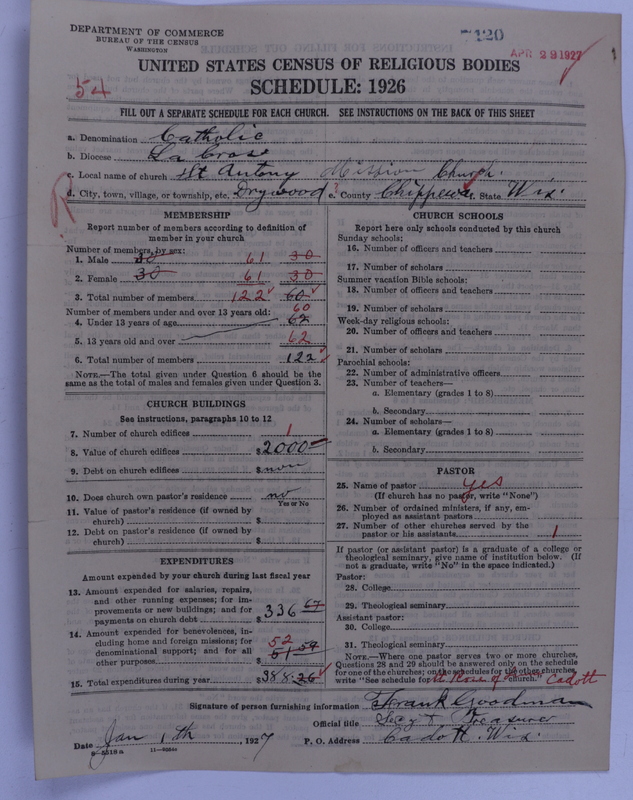 DEPARTMENT OF COMMERCE
BUREAU OF THE CENSUS
WASHINGTON
7120
APR 29 1927
UNITED STATES CENSUS OF RELIGIOUS BODIES
SCHEDULE: 1926
54
FILL OUT A SEPARATE SCHEDULE FOR EACH CHURCH. SEE INSTRUCTIONS ON THE BACK OF THIS SHEET
a. Denomination Catholic
b. Diocese La Cross
c. Local name of church St Antony Mission Church.
d. City, town, village, or township, etc. Drywood e. County Chippewa f. State Wis.
MEMBERSHIP
Report number of members according to definition of
member in your church
Number of members, by sex:
1. Male 30 61 30
2. Female 30 61 30
3. Total number of members 122 60
Number of members under and over 13 years old:
4. Under 13 years of age 60 62
5. 13 years old and over 62
6. Total number of members 122
NOTE.—The total given under Question 6 should be the
same as the total of males and females given under Question 3.
CHURCH BUILDINGS
See instructions, paragraphs 10 to 12
7. Number of church edifices 1
8. Value of church edifices $2000
9. Debt on church edifices $ non
10. Does church own pastor's residence no
Yes or No
11. Value of pastor's residence (if owned by
church) $
12. Debt on pastor's residence (if owned by
church) $
EXPENDITURES
Amount expended by your church during last fiscal year
13. Amount expended for salaries, repairs,
and other running expenses; for im-
provements or new buildings; and for
payments on church debt $ 336 67
14. Amount expended for benevolences, in-
cluding home and foreign missions; for
denominational support; and for all
other purposes $ 52 51 59
15. Total expenditures during year $ 388.26
CHURCH SCHOOLS
Report here only schools conducted by this church
Sunday schools:
16. Number of officers and teachers
17. Number of scholars
Summer vacation Bible schools:
18. Number of officers and teachers
19. Number of scholars
Week-day religious schools:
20. Number of officers and teachers
21. Number of scholars
Parochial schools:
22. Number of administrative officers
23. Number of teachers—
a. Elementary (grades 1 to 8)
b. Secondary
24. Number of scholars—
a. Elementary (grades 1 to 8)
b. Secondary
PASTOR
25. Name of pastor yes
(If church has no pastor, write "None")
26. Number of ordained ministers, if any, em-
ployed as assistant pastors
27. Number of other churches served by the
pastor or his assistants 1
If pastor (or assistant pastor) is a graduate of a college or
theological seminary, give name of institution below. (If
not a graduate, write "No" in the space indicated.)
Pastor:
28. College
29. Theological seminary
Assistant pastor:
30. College
31. Theological seminary
NOTE.—Where one pastor serves two or more churches,
Questions 28 and 29 should be answered only on the schedule
for one of the churches; on the schedules for the other churches,
write "See schedule for St Rose of church." Cadott
Signature of person furnishing information Frank Goodman
Official title Secy & Treasurer
Date Jan 1th, 1927 P. O. Address Cadott. Wis.
8-5518 a